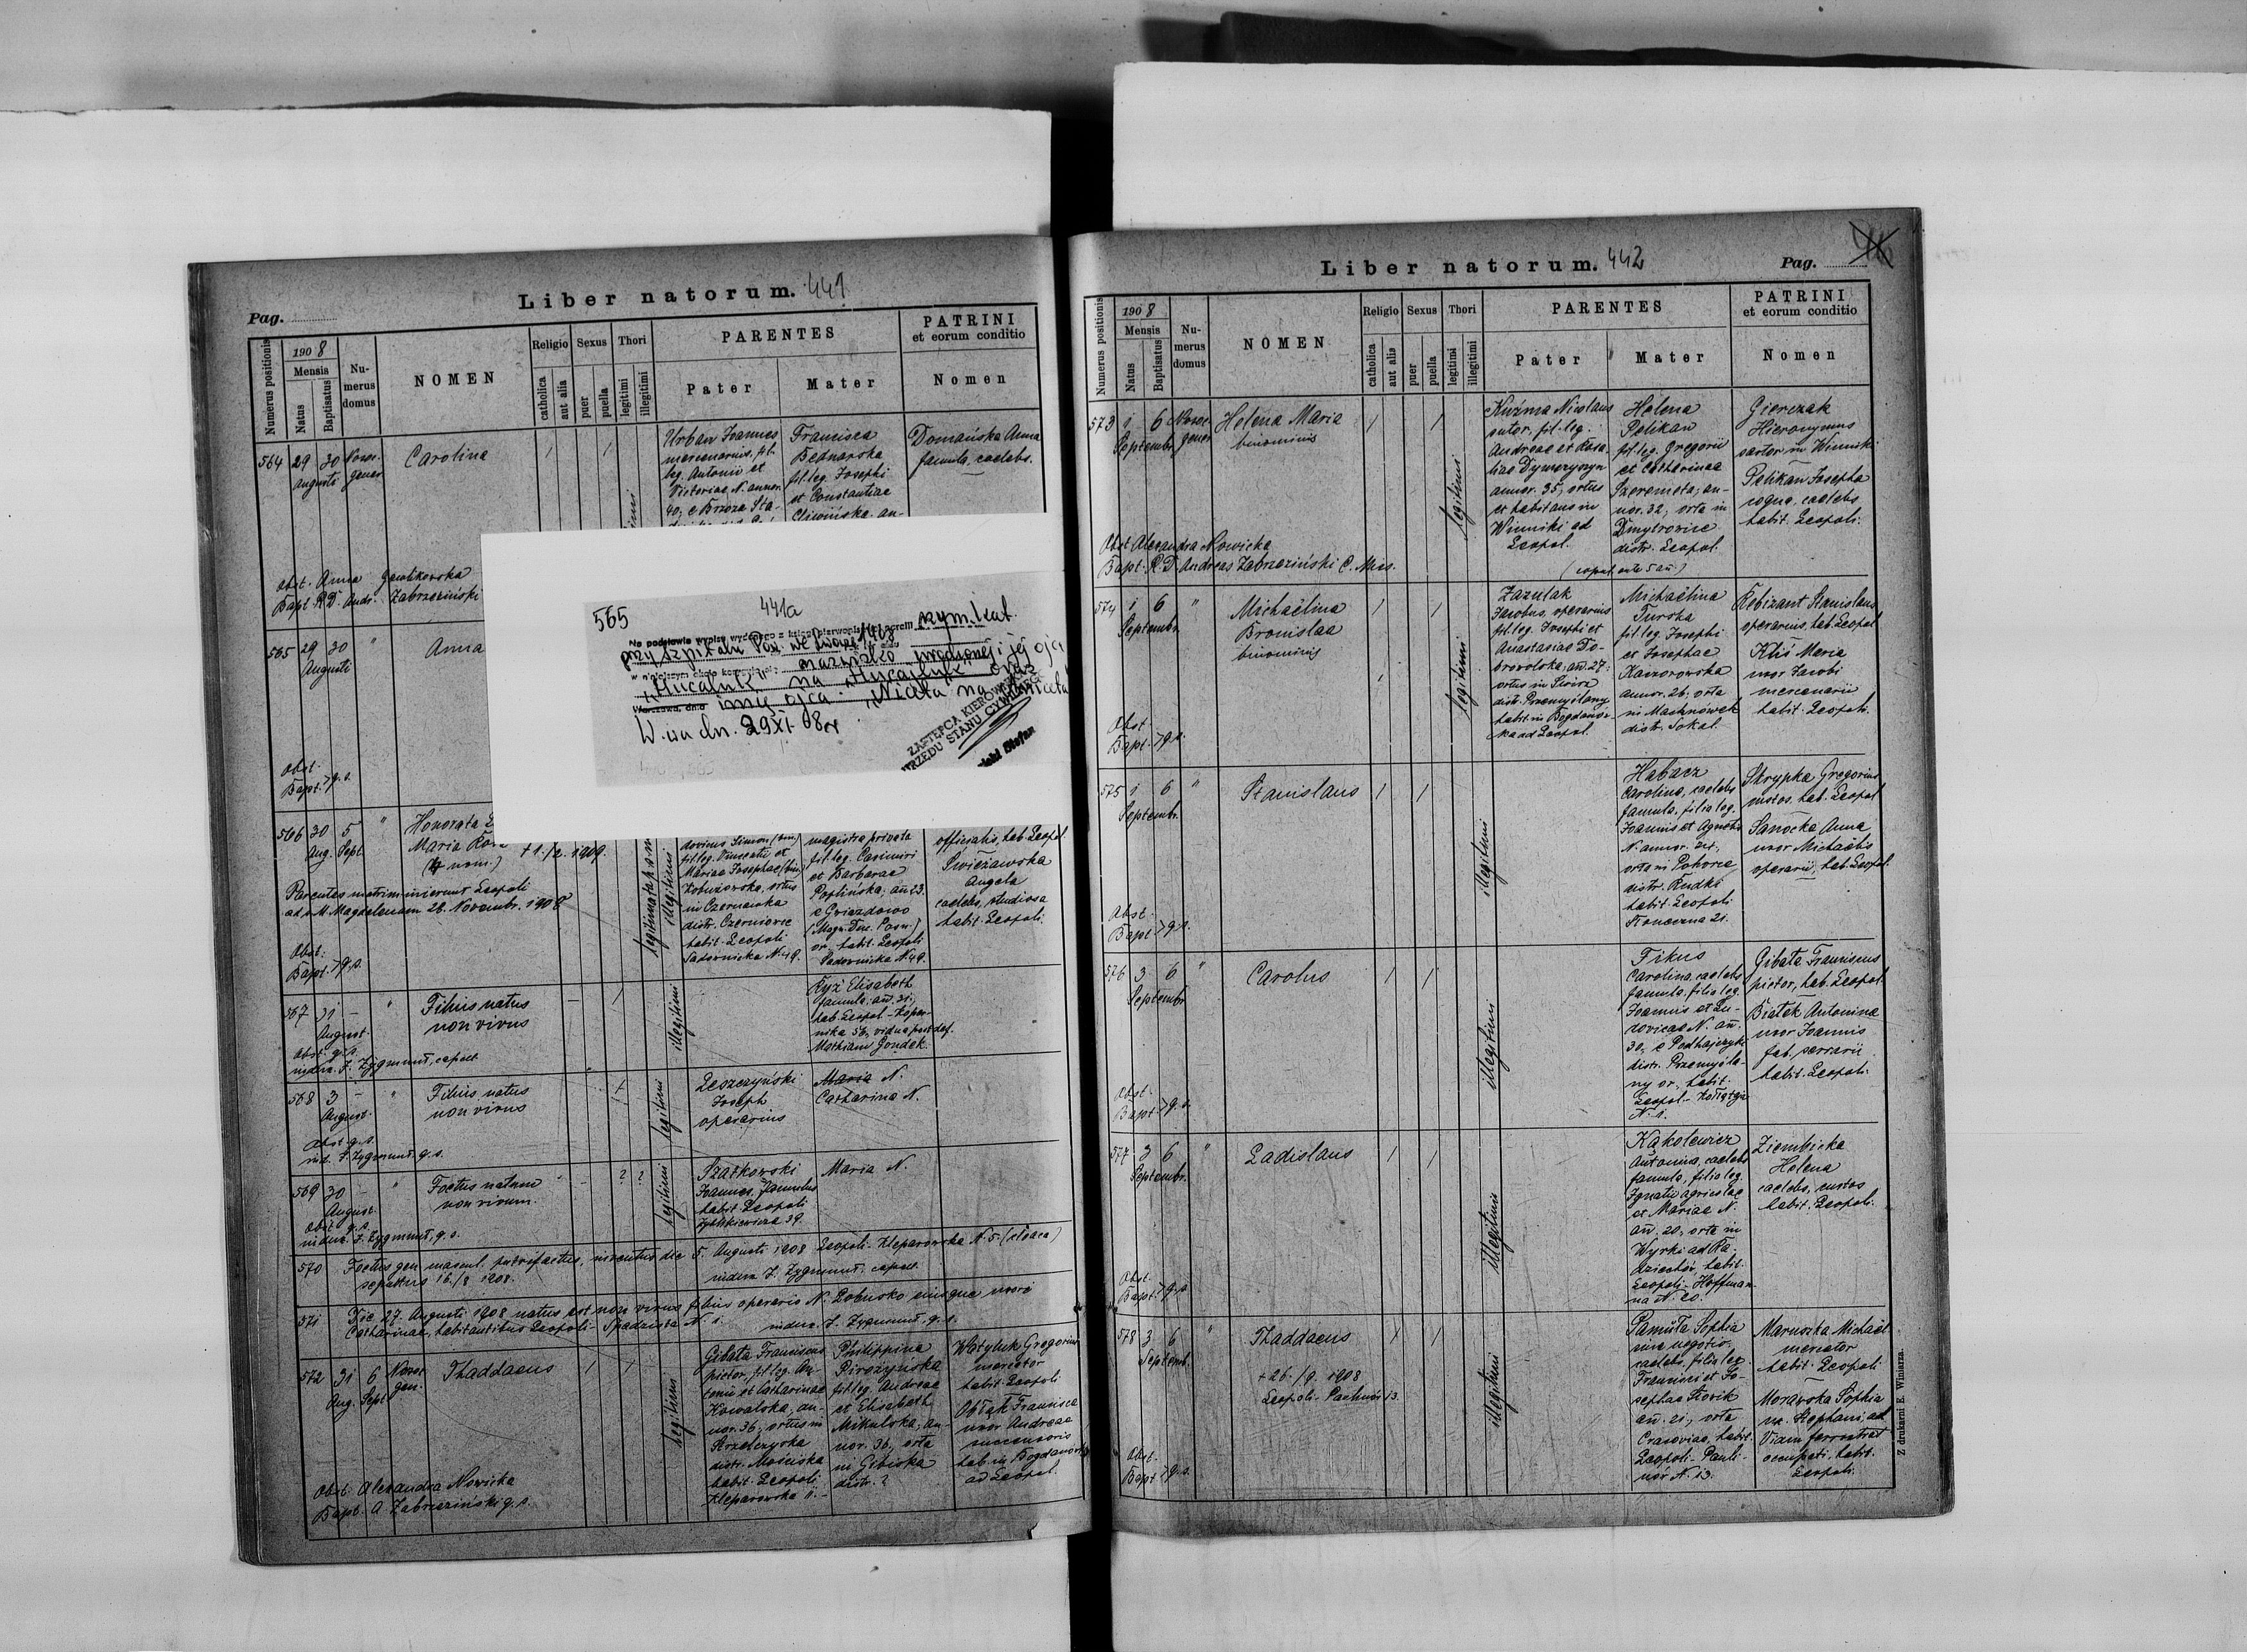 Pag.
Liber natorum. 441
Numerus positionis
1908
Mensis
Natus
Baptisatus
Nu-
merus
domus
NOMEN
Religio
catholica
aut alia
Sexus
puer
puella
Thori
legitimi
illegitimi
PARENTES
Pater
Mater
PATRINI
et eorum conditio
Nomen
564 29 30 Nosoc.
Augusti gener.
Carolina
1 1
Urban Joannes
mercenarius, fil.
leg. Antonii et
Victoriae N. annor.
40, e Brzoza Sta-
Francisca
Bednarska
fil. leg. Josephi
et Constantiae
Cliwińska an-
Domańska Anna
famula, caelebs.
Obst. Anna Gawlikowska
Bapt. R.D. Andr. Zabrzeziński
565 29 30 "
Augusti
Anna
Obst.
Bapt. > q. s.
565 441a
Na podstawie wypisu wydanego z księgi pierwopisu parafii rzym. kat.
przy szpitalu Pow. we Lwowie 1908
nazwisko urodzonej i jej ojca
"Hucaluk" na
oraz
Warszawa, dnia imię ojca:
W-wa dn. 29 XI
ZASTĘPCA KIEROWNIKA
URZĘDU STANU CYWILNEGO
Stefan
566 30 5 "
Aug. Sept.
Honorata
Maria
(4 nom.)
+ 1./2. 1909.
Parentes matrim. inierunt Leopoli
ad s. M. Magdalenam 28. Novembr. 1908
Obst.
Bapt. > q. s.
illegitimi
dovicus Simon (bin.)
fil. leg. Vincentii et
Mariae Josephae (bin.)
ortus
in Czernawka
distr. Czerniowce
habit. Leopoli
Sadownicka N. 49.
magistra privata
fil. leg. Casimiri
et Barbarae
an. 23.
e Gwiazdowo
(Magn. Duc. Posn.)
or. habit. Leopoli
Sadownicka N. 49.
officialis, hab. Leopol.
Świeżawska
Angela
caelebs, studiosa
habit. Leopoli.
567 31 - "
August.
Filius natus
non vivus
- 1
illegitimi
Ryż Elisabeth
famula, an. 31,
hab. Leopol. - Koper-
nika 56, vidua post def.
Mathiam Gondek.
Obst. q. s.
indux. J. Zygmunt, capell.
568 3 - "
August.
Filius natus
non vivus
legitimi
Leszczyński
Joseph
operarius
Maria N.
Catharina N.
Obst. q. s.
ind. J. Zygmunt q. s.
569 30 - "
August.
Foetus natum
non vivum.
- ? ?
legitimi
Szatkowski
Joannes, famulus
habit. Leopoli
Zyblikiewicza 39.
Maria N.
Obst. q. s.
indux. J. Zygmunt, q. s.
570 Foetus gen. mascul. putrefactus, inventus die 5. Augusti 1908 Leopoli - Kleparowska N. 5. (cloaca)
sepultus 16./8. 1908. indux. J. Zygmunt, capell.
571 Die 27. Augusti 1908 natus est non vivus filius operarii N. eiusque uxoris
Catharinae, habitantibus Leopoli - Spadzista N. 1. indux. J. Zygmunt, q. s.
572 31 6 Nosoc.
Aug. Sept. gen.
Thaddaeus
1 1
legitimi
Gibata Franciscus
pictor, fil. leg. An-
tonii et Catharinae
Kowalska, an-
nor. 36, ortus in
Strzelczyska
distr. Mościska
habit. Leopoli
Kleparowska 11.
Philippina
Pirożyńska
fil. leg. Andreae
et Elisabeth
Mikulska, an-
nor. 36, orta
in
distr. ?
Gregorius
mercator
habit. Leopoli
Obłąk Francisca
uxor Andreae
successoris
hab. in Bogdanówka
ad Leopol.
Obst. Alexandra Nowicka
Bapt. A. Zabrzeziński q. s.
Liber natorum. 442
Pag.
Numerus positionis
1908
Mensis
Natus
Baptisatus
Nu-
merus
domus
NOMEN
Religio
catholica
aut alia
Sexus
puer
puella
Thori
legitimi
illegitimi
PARENTES
Pater
Mater
PATRINI
et eorum conditio
Nomen
573 1 6 Nosoc.
Septembr. gener.
Helena Maria
binominis
1 1
legitimi
Kuźma Nicolaus
sutor, fil. leg.
Andreae et Rosa-
liae
annor. 35, ortus
et habitans in
Winniki ad
Leopol.
Helena
Pelikan
fil. leg. Gregorii
et Catharinae
Szeremeta, an-
nor. 32, orta in
Dmytrowice
distr. Leopol.
(copul. ante 5 an.)
Gierczak
Hieronymus
sartor in Winniki
Pelikan Josepha
caelebs
habit. Leopoli.
Obst. Alexandra Nowicka
Bapt. R.D. Andreas Zabrzeziński C. Miss.
574 1 6 "
Septembr.
Michaëlina
Bronislaa
binominis
1 1
legitimi
Zazulak
Jacobus, operarius
fil. leg. Josephi et
Anastasiae Do-
browolska, an. 27,
ortus in Świrz
distr. Przemyślany
habit. in Bogdanów-
ka ad Leopol.
Michaëlina
Turska
fil. leg. Josephi
et Josephae
Kaczorowska
annor. 26, orta
in Machnówek
distr. Sokal.
Rebizant Stanislaus
operarius, hab. Leopol.
Kliś Maria
uxor Jacobi
mercenarii
habit. Leopoli.
Obst.
Bapt. > q. s.
575 1 6 "
Septembr.
Stanislaus
1 1
illegitimi
Habacz
Carolina, caelebs
famula, filia leg.
Joannis et Agnetis
N. annor. 24,
orta in Pohorce
distr. Rudki
habit. Leopoli
Słoneczna 21.
Skrypka Gregorius
custos, hab. Leopol.
Sanocka Anna
uxor Michaëlis
operarii, hab. Leopol.
Obst.
Bapt. > q. s.
576 3 6 "
Septembr.
Carolus
1 1
illegitimi
Fikus
Carolina, caelebs
famula, filia leg.
Joannis et Lu-
dovicae N. an.
30, e Podhajczyki
distr. Przemyśla-
ny or., habit.
Leopol. - Kołłątaja
N. 1.
Gibata Franciscus
pictor, hab. Leopol.
Białek Antonina
uxor Joannis
fab. serrarii
habit. Leopoli.
Obst.
Bapt. > q. s.
577 3 6 "
Septembr.
Ladislaus
1 1
illegitimi
Kąkolewicz
Antonina, caelebs
famula, filia leg.
Ignatii agricolae
et Mariae N.
an. 20, orta in
Wyrki ad Ra-
dziechów, habit.
Leopoli - Hoffman-
na N. 20.
Ziembicka
Helena
caelebs, custos
habit. Leopoli.
Obst.
Bapt. > q. s.
578 3 6 "
Septemb.
Thaddaeus
1 1
+ 26./9. 1908
Leopoli - Paulinów 13.
illegitimi
Pamuła Sophia
sine negotio,
caelebs, filia leg.
Francisci et Jo-
sephae Słowik
an. 21, orta
Cracoviae, habit.
Leopoli - Pauli-
nów N. 13.
Maruszka Michaël
mercator
habit. Leopoli
Morawska Sophia
ux. Stephani, ad
Viam ferrostrat.
occupati, habit.
Leopoli.
Obst.
Bapt. > q. s.
Z drukarni E. Winiarza.